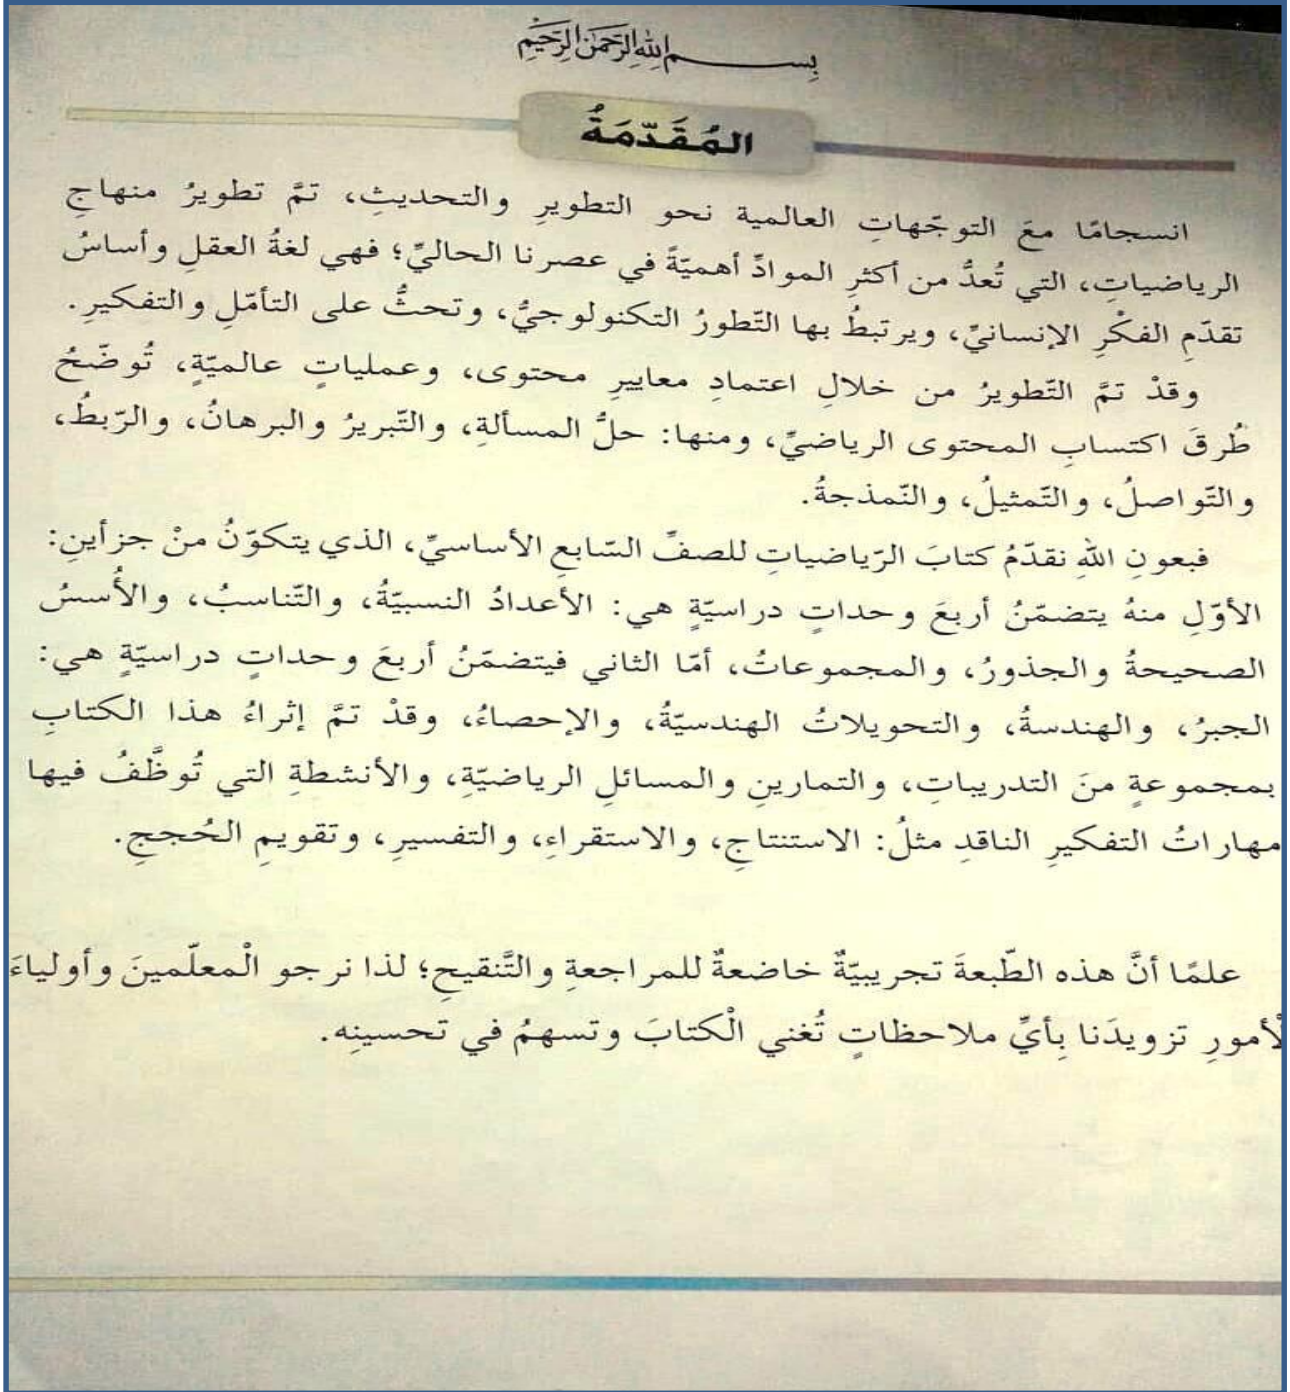 بِسْمِ اللهِ الرَّحْمٰنِ الرَّحِيْمِ
المُقَدّمَةُ
انسجامًا معَ التوجّهاتِ العالمية نحو التطويرِ والتحديثِ، تمَّ تطويرُ منهاجِ
الرياضياتِ، التي تُعدُّ من أكثرِ الموادِّ أهميّةً في عصرنا الحاليِّ؛ فهي لغةُ العقلِ وأساسُ
تقدّمِ الفكْرِ الإنسانيِّ، ويرتبطُ بها التّطورُ التكنولوجيُّ، وتحثُّ على التأمّلِ والتفكيرِ.
وقدْ تمَّ التّطويرُ من خلالِ اعتمادِ معاييرِ محتوى، وعملياتٍ عالميّةٍ، تُوضّحُ
طُرقَ اكتسابِ المحتوى الرياضيِّ، ومنها: حلُّ المسألةِ، والتّبريرُ والبرهانُ، والرّبطُ،
والتّواصلُ، والتّمثيلُ، والنّمذجةُ.
فبعونِ اللهِ نقدّمُ كتابَ الرّياضياتِ للصفِّ السّابعِ الأساسيِّ، الذي يتكوّنُ منْ جزأينِ:
الأوّلِ منهُ يتضمّنُ أربعَ وحداتٍ دراسيّةٍ هي: الأعدادُ النسبيّةُ، والتّناسبُ، والأُسسُ
الصحيحةُ والجذورُ، والمجموعاتُ، أمّا الثاني فيتضمّنُ أربعَ وحداتٍ دراسيّةٍ هي:
الجبرُ، والهندسةُ، والتحويلاتُ الهندسيّةُ، والإحصاءُ، وقدْ تمَّ إثراءُ هذا الكتابِ
بمجموعةٍ منَ التدريباتِ، والتمارينِ والمسائلِ الرياضيّةِ، والأنشطةِ التي تُوظَّفُ فيها
مهاراتُ التفكيرِ الناقدِ مثلُ: الاستنتاجِ، والاستقراءِ، والتفسيرِ، وتقويمِ الحُججِ.
علمًا أنَّ هذه الطّبعةَ تجريبيّةٌ خاضعةٌ للمراجعةِ والتَّنقيحِ؛ لذا نرجو الْمعلّمينَ وأولياءَ
الْأمورِ تزويدَنا بِأيِّ ملاحظاتٍ تُغني الْكتابَ وتسهمُ في تحسينِه.